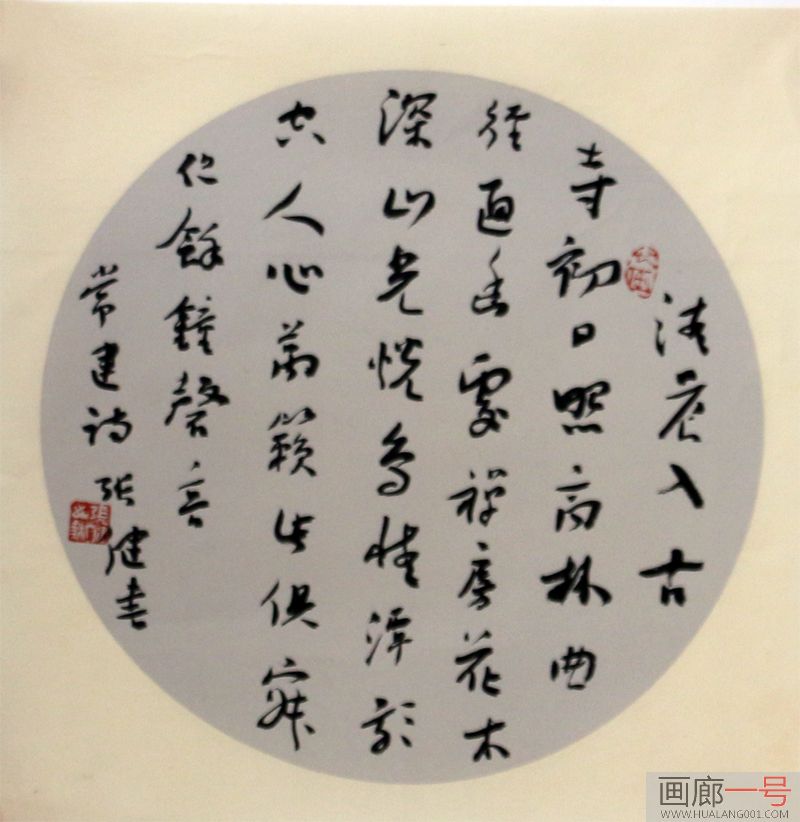 清晨入古
寺初日照高林曲
徑通幽處禪房花木
深山光悦鸟性潭影
空人心萬籟此俱寂
但餘鐘磬音
常建诗 张健書
画廊一号
WWW.HUALANG001.COM